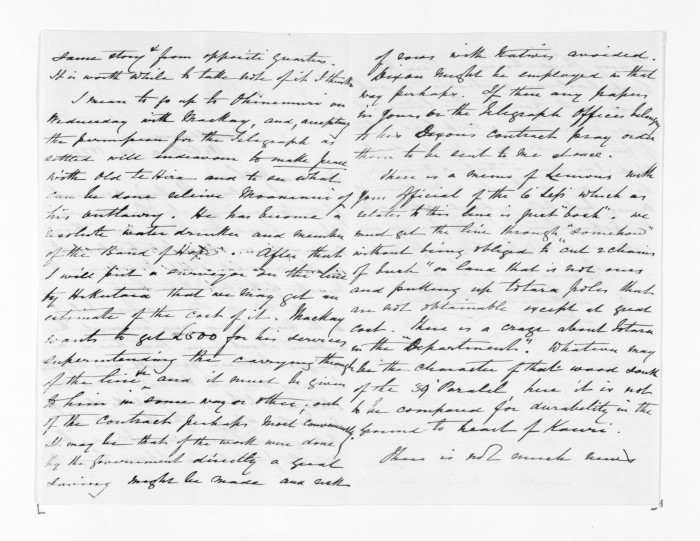 same story & from opposite quarters.
It is worth while to take note of it I think
I mean to go up to Ohinemuri on
Wednesday with Mackay, and, accepting
the permission for the Telegraph as
settled will endeavour to make peace
with Old te Hira and to see what
can be done relieve Moananui of
his outlawry. He has become a
resolute water drinker and member
of the "Band of Hope". After that
I will put a surveyor on the line
by Hikutaia that we may get an
estimate of the cost of it. Mackay
wants to get £500 for his services
superintending the carrying through
of the line &c and it must be given
to him in some way or other; out
of the Contract perhaps most conveniently.
It may be that if the work were done
by the Government directly a great
saving might be made and risk
of rows with Natives avoided.
Dixon might be employed in that
way perhaps. If there any papers
in yours or the Telegraph Offices belonging
to his Dixon's contract pray order
them to be sent to me at once.
There is a memo of Lemons with
your official of the 6 Sept which as
relates to this line is just "bosh". We
must get the line through "somehow"
without being obliged to "cut 2 chains
of bush" on land that is not ours
and putting up totara poles that
are not obtainable except at great
cost. There is a craze about Totara
in the "Department". Whatever may
be the character of that wood South
of the 39 Paralel here it is not
to be compared for durability in the
ground to heart of Kauri.
There is not much news